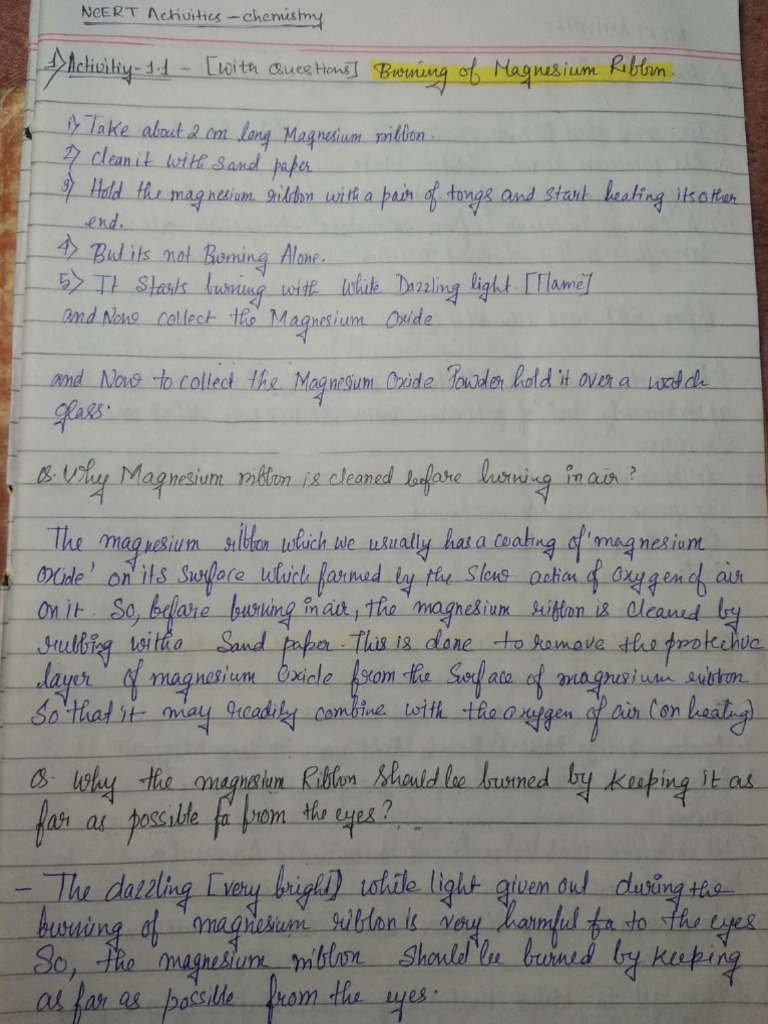 NCERT Activities - chemistry
1) Activitiy-1.1 - [With Questions] Burning of Magnesium Ribbon.
1) Take about 2 cm long Magnesium ribbon.
2) clean it with Sand paper
3) Hold the magnesium ribbon with a pair of tongs and start heating its other
end.
4) But its not Burning Alone.
5) It Starts burning with white Dazzling light. [Flame]
and Now collect the Magnesium Oxide
and Now to collect the Magnesium Oxide Powder hold it over a watch
glass.
Q. Why Magnesium ribbon is cleaned before burning in air?
The magnesium ribbon which we usually has a coating of 'magnesium
Oxide' on its Surface which formed by the Slow action of oxygen of air
on it. So, before burning in air, the magnesium ribbon is cleaned by
rubbing with a Sand paper. This is done to remove the protective
layer of magnesium Oxide from the Surface of magnesium ribbon
So that it may readily combine with the oxygen of air (on heating)
Q. Why the magnesium Ribbon Should be burned by keeping it as
far as possible fa from the eyes?
- The dazzling [very bright] white light given out during the
burning of magnesium ribbon is very harmful fa to the eyes
So, the magnesium ribbon should be burned by keeping
as far as possible from the eyes.